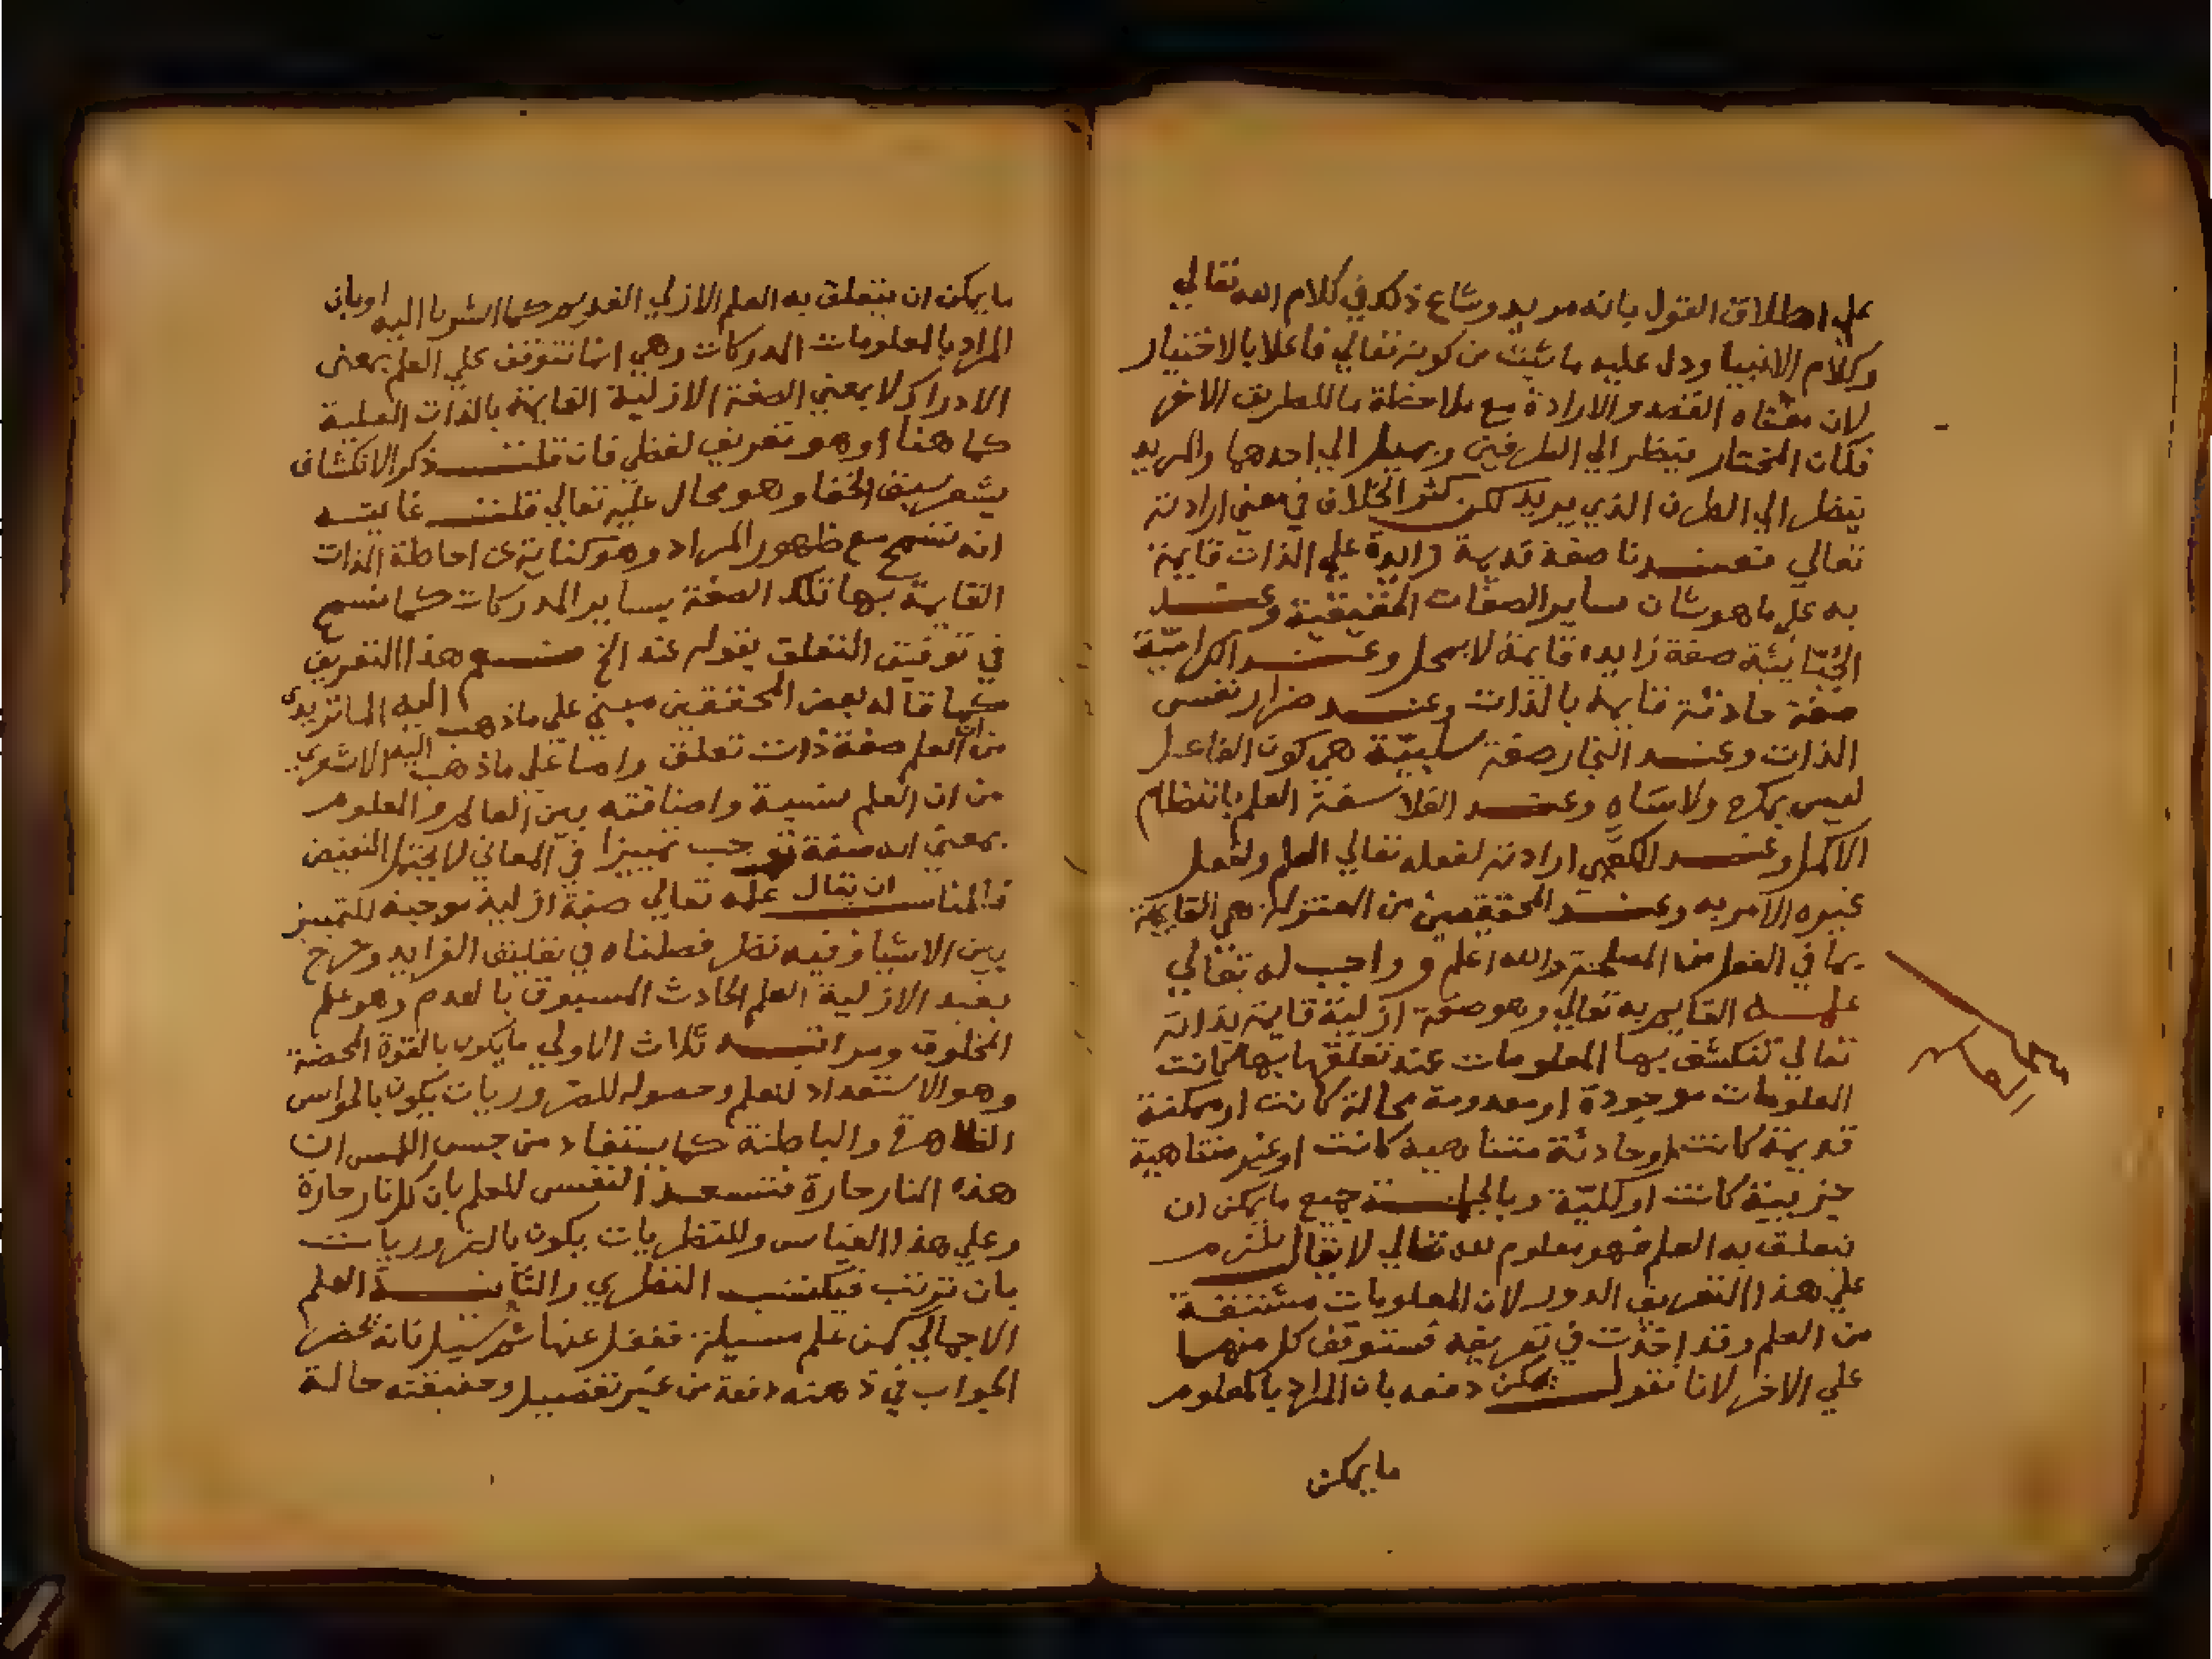 علي اطلاق القول بانه مريد وشاع ذلك في كلام الله تعالي
وكلام الانبيا ودل عليه ما ثبت من كونه تعالي فاعلا بالاختيار
لان معناه القصد والارادة مع ملاحظة ما للطريق الاخر
فكان المختار ينظر الي الطرفين ويميل الي احدهما والمريد
ينظر الي الطرف الذي يريد لكن كثر الخلاف في معني ارادته
تعالي فعندنا صفة قديمة زايدة علي الذات قايمة
به علي ما هو شان ساير الصفات الحقيقية وعند
الجبائية صفة زايده قايمة لا بمحل وعند الكرامية
صفة حادثة قايمة بالذات وعند ضرار نفس
الذات وعند النجار صفة سلبية هي كون الفاعل
ليس بمكره ولا ساه وعند الفلاسفة العلم بانتظام
الاكمل وعند الكعبي ارادته لفعله تعالي العلم ولفعل
غيره الامر به وعند المحققين من المعتزلة هي القايمة
بما في الفعل من المصلحة والله اعلم و واجب له تعالي
علمه القايم به تعالي وهو صفة ازلية قايمة بذاته
تعالي تنكشف بها المعلومات عند تعلقها بها كانت
المعلومات موجودة او معدومة محالة كانت او ممكنة
قديمة كانت او حادثة متناهية كانت او غير متناهية
جزيية كانت او كلية وبالجملة جميع ما يمكن ان
يتعلق به العلم فهو معلوم لله تعالي لا يقال يلزم
علي هذا التعريف الدور لان المعلومات مشتقة
من العلم وقد اخذت في تعريفه فستوقف كل منهما
علي الاخر لانا نقول يمكن دفعه بان المراد بالمعلوم
ما يمكن
العلم
ما يمكن ان يتعلق به العلم الازلي القديم كما اشرنا اليه او بان
المراد بالمعلومات المدركات وهي انما تتوقف علي العلم بمعني
الادراك لا بمعني الصفة الازلية القايمة بالذات العلية
كما هنا او هو تعريف لفظي فان قلت ذكر الانكشاف
يشعر بسبق الخفا وهو محال عليه تعالي قلت غايته
انه تسمح مع ظهور المراد وهو كناية عن احاطة الذات
القايمة بها تلك الصفة بساير المدركات كما تسمح
في توقيت التعلق بقوله عند الخ ثم هذا التعريف
كما قاله بعض المحققين مبني علي ما ذهب اليه الماتريدي
من ان العلم صفة ذات تعلق واما علي ما ذهب اليه الاشعري
من ان العلم نسبة واضافته بين العالم والمعلوم
بمعني انه صفة توجب تمييزا في المعاني لا يحتمل النقيض
فالمناسب ان يقال علمه تعالي صفة ازلية موجبة للتمييز
بين الاشيا وفيه نظر فصلناه في تعليق الفرايد وخرج
بقيد الازلية العلم الحادث المسبوق بالعدم وهو علم
المخلوق ومراتبه ثلاث الاولي ما يكون بالقوة المحضة
وهو الاستعداد للعلم وحصوله للضروريات يكون بالحواس
الظاهرة والباطنة كما يستفاد من حس اللمس ان
هذه النار حارة فتستعد النفس للعلم بان كل نار حارة
وعلي هذا القياس وللنظريات يكون بالضروريات
بان ترتب فيكتسب النظري والثانية العلم
الاجمالي كمن علم مسيلة فغفل عنها ثم سيل فانه يحضر
الجواب في ذهنه دفعة من غير تفصيل وحقيقته حالة